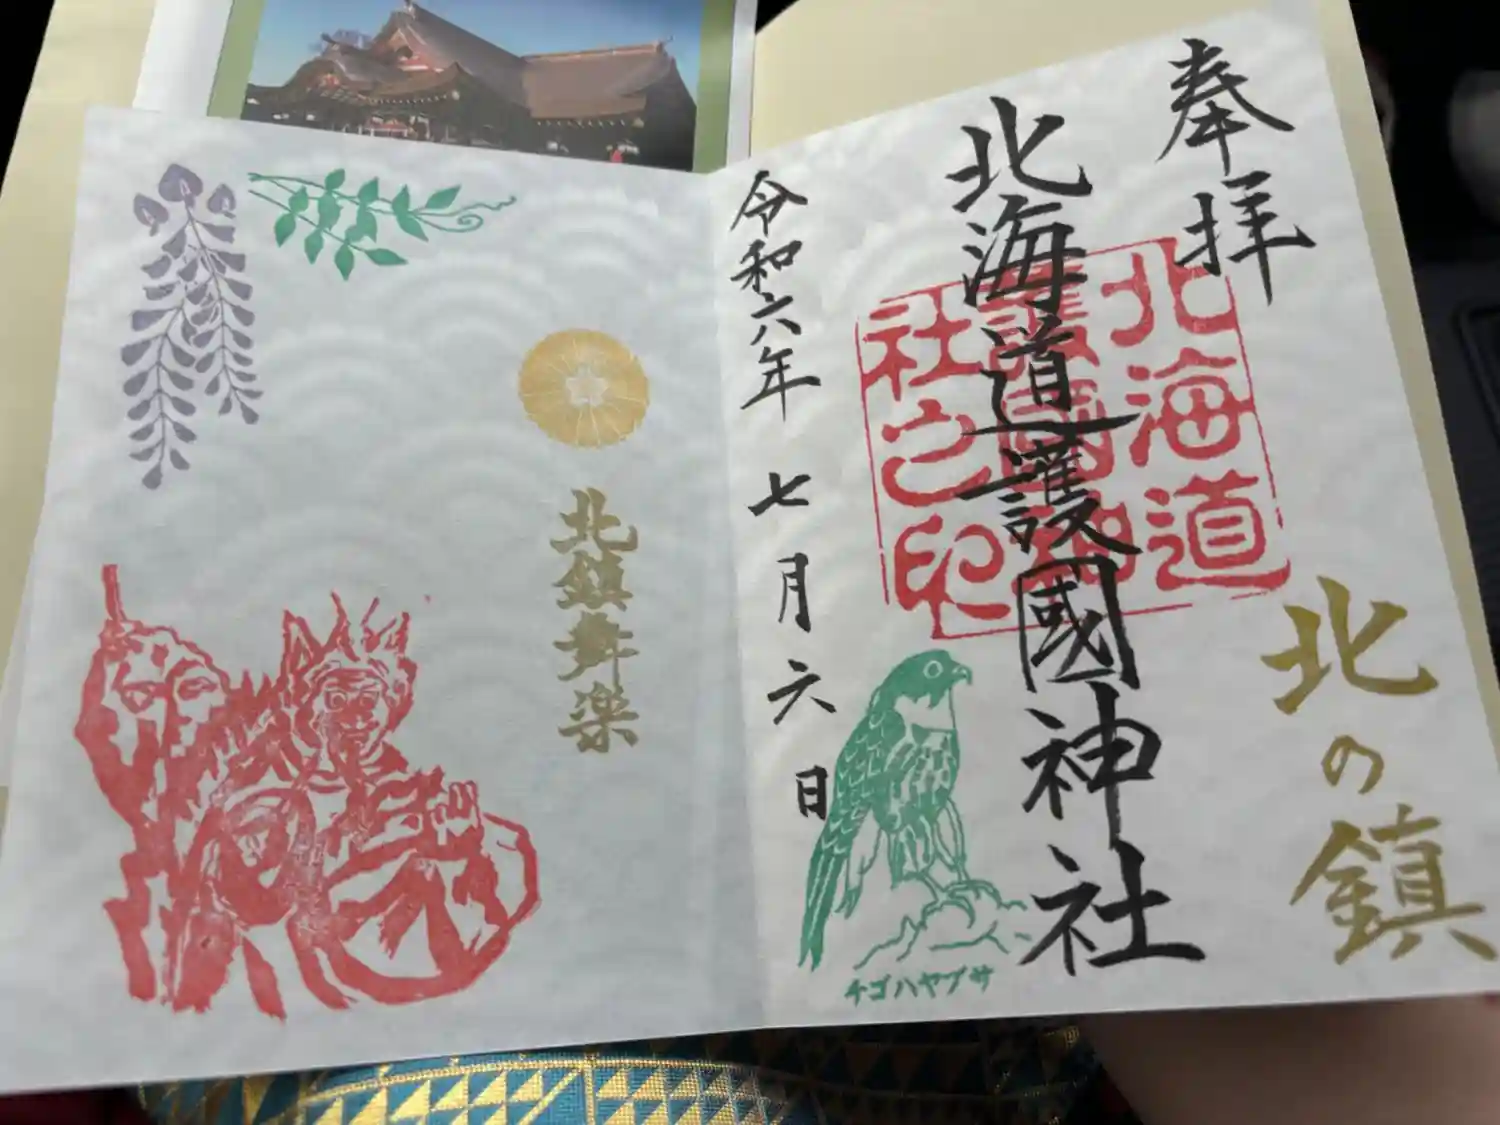 奉拝
北海道護國神社
北海道
護國神
社之印
北の鎮
チゴハヤブサ
令和六年七月六日
北鎮舞楽